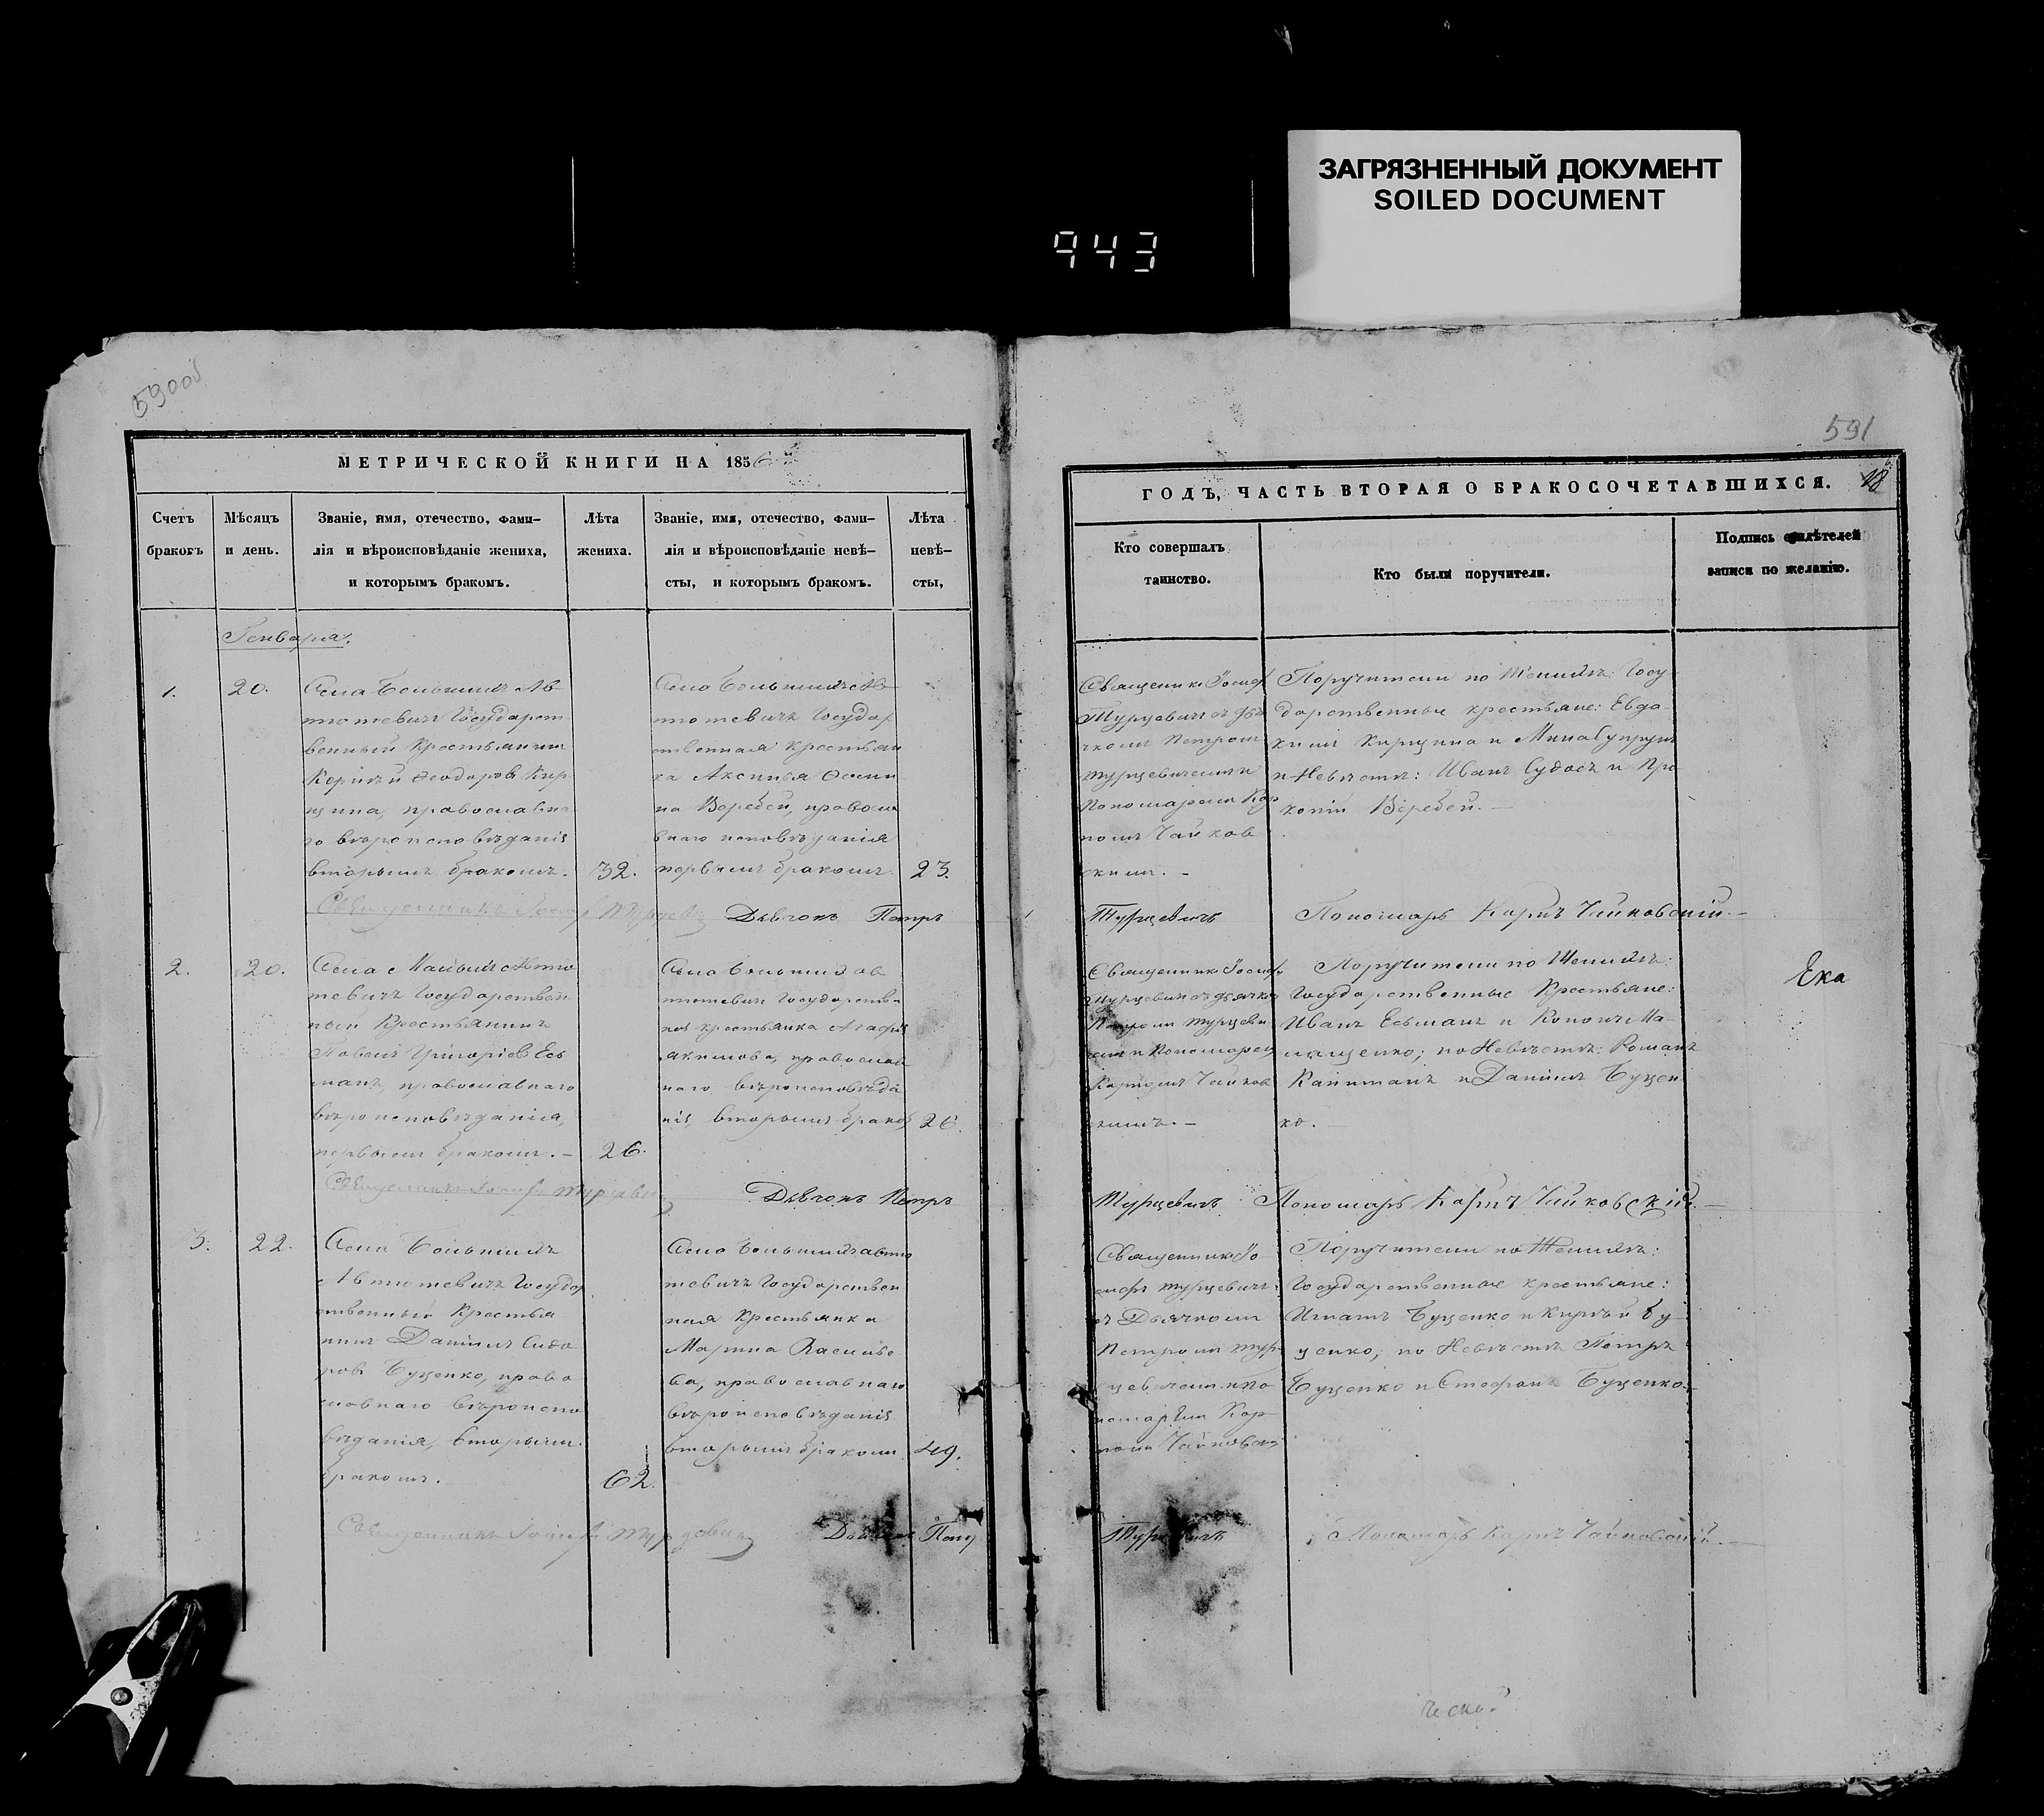 ЗАГРЯЗНЕННЫЙ ДОКУМЕНТ
SOILED DOCUMENT
943
590об
МЕТРИЧЕСКОЙ КНИГИ НА 1856
Счетъ
браковъ
Мѣсяцъ
и день.
Званіе, имя, отечество, фами-
лія и вѣроисповѣданіе жениха,
и которымъ бракомъ.
Лѣта
жениха.
Званіе, имя, отечество, фами-
лія и вѣроисповѣданіе невѣ-
сты, и которымъ бракомъ.
Лѣта
невѣ-
сты,
Генваря.
1.
20.
Села Большихъ Ав
тютевичъ Государст
венный Крестьянинъ
Корнѣй Ѳеодоровъ Кир
щина, православна
го вѣроисповѣданія
вторымъ бракомъ.
32.
Села Большихъ Ав
тютевичъ Государ
ственная крестьян
ка Аксинья Осипо
ва Веребей, правосла
внаго исповѣданія
первымъ бракомъ
23.
Священникъ Іосифъ Турцевичъ Дьячокъ Петръ
2.
20.
Села Малыхъ Автю
тевичъ Государствен
ный Крестьянинъ
Павелъ Григоріевъ Есь
манъ, православнаго
вѣроисповѣданія,
первымъ бракомъ. —
26.
Села Большихъ Ав
тютевичъ Государствен
ная крестьянка Агафія
Акимова, православ
наго вѣроисповѣда
нія, вторымъ бракомъ
26.
Священникъ Іосифъ Турцевичъ Дьячокъ Петръ
3.
22.
Села Большихъ
Автютевичъ Государ
ственный Крестья
нинъ Даніилъ Сидо
ровъ Буценко, право
славнаго вѣроиспо
вѣданія, вторымъ
бракомъ.
62.
Села Большихъ Автю
тевичъ Государствен
ная Крестьянка
Марина Василье
ва, православнаго
вѣроисповѣданія
вторымъ бракомъ
49.
Священникъ Іосифъ Турцевичъ Дьячокъ Петръ
591
ГОДЪ, ЧАСТЬ ВТОРАЯ О БРАКОСОЧЕТАВШИХСЯ.
18
Кто совершалъ
таинство.
Кто были поручители.
Подпись свидѣтелей
записи по желанію.
Священникъ Іосифъ
Турцевичъ съ дья
чкомъ Петромъ
Турцевичемъ и
Пономаремъ Кар
помъ Чайков
скимъ. —
Поручители по Женихѣ: Госу
дарственные крестьяне: Евдо
кимъ Кирщина и Мина Супрун
и Невѣстѣ: Иванъ Судасъ и Про
копій Веребей. —
Турцевичъ Пономарь Карпъ Чайковскій. —
Священникъ Іосифъ
Турцевичъ съ дьячкомъ
Петромъ Турцеви
чемъ и Пономаремъ
Карпомъ Чайков
скимъ. —
Поручители по Женихѣ:
Государственные Крестьяне:
Иванъ Есьманъ и Кононъ Ма
ащенко; по Невѣстѣ: Романъ
Капитанъ и Даніилъ Буцен
ко. —
Ека
Турцевичъ Пономарь Карпъ Чайковскій. —
Священникъ Іо
сифъ Турцевичъ
съ Дьячкомъ
Петромъ Тур
цевичемъ и По
номаремъ Кар
помъ Чайковск
Поручители по Женихѣ:
Государственные крестьяне:
Игнатъ Буценко и Кирѣй Бу
ценко, по Невѣстѣ Петръ
Буценко и Стефанъ Буценко. —
Турцевичъ Пономарь Карпъ Чайковскій. —
ческой